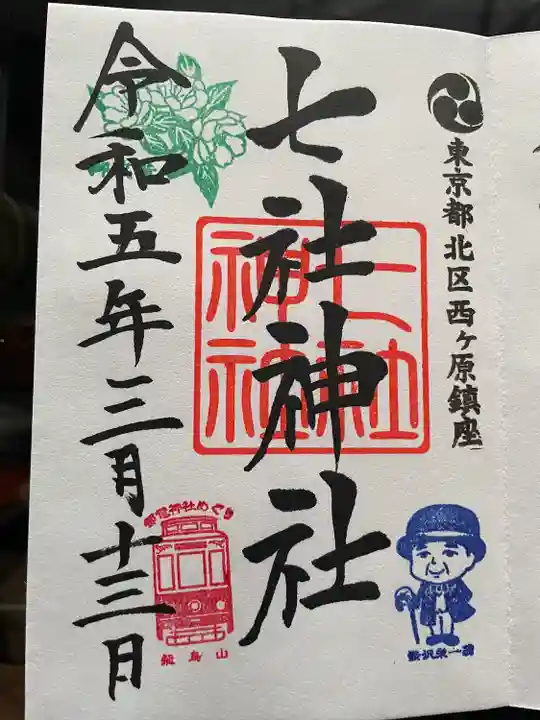 東京都北区西ヶ原鎮座
七社神社
七社
神社
令和五年三月十三日
御信神社めぐり
飛鳥山
渋沢栄一翁